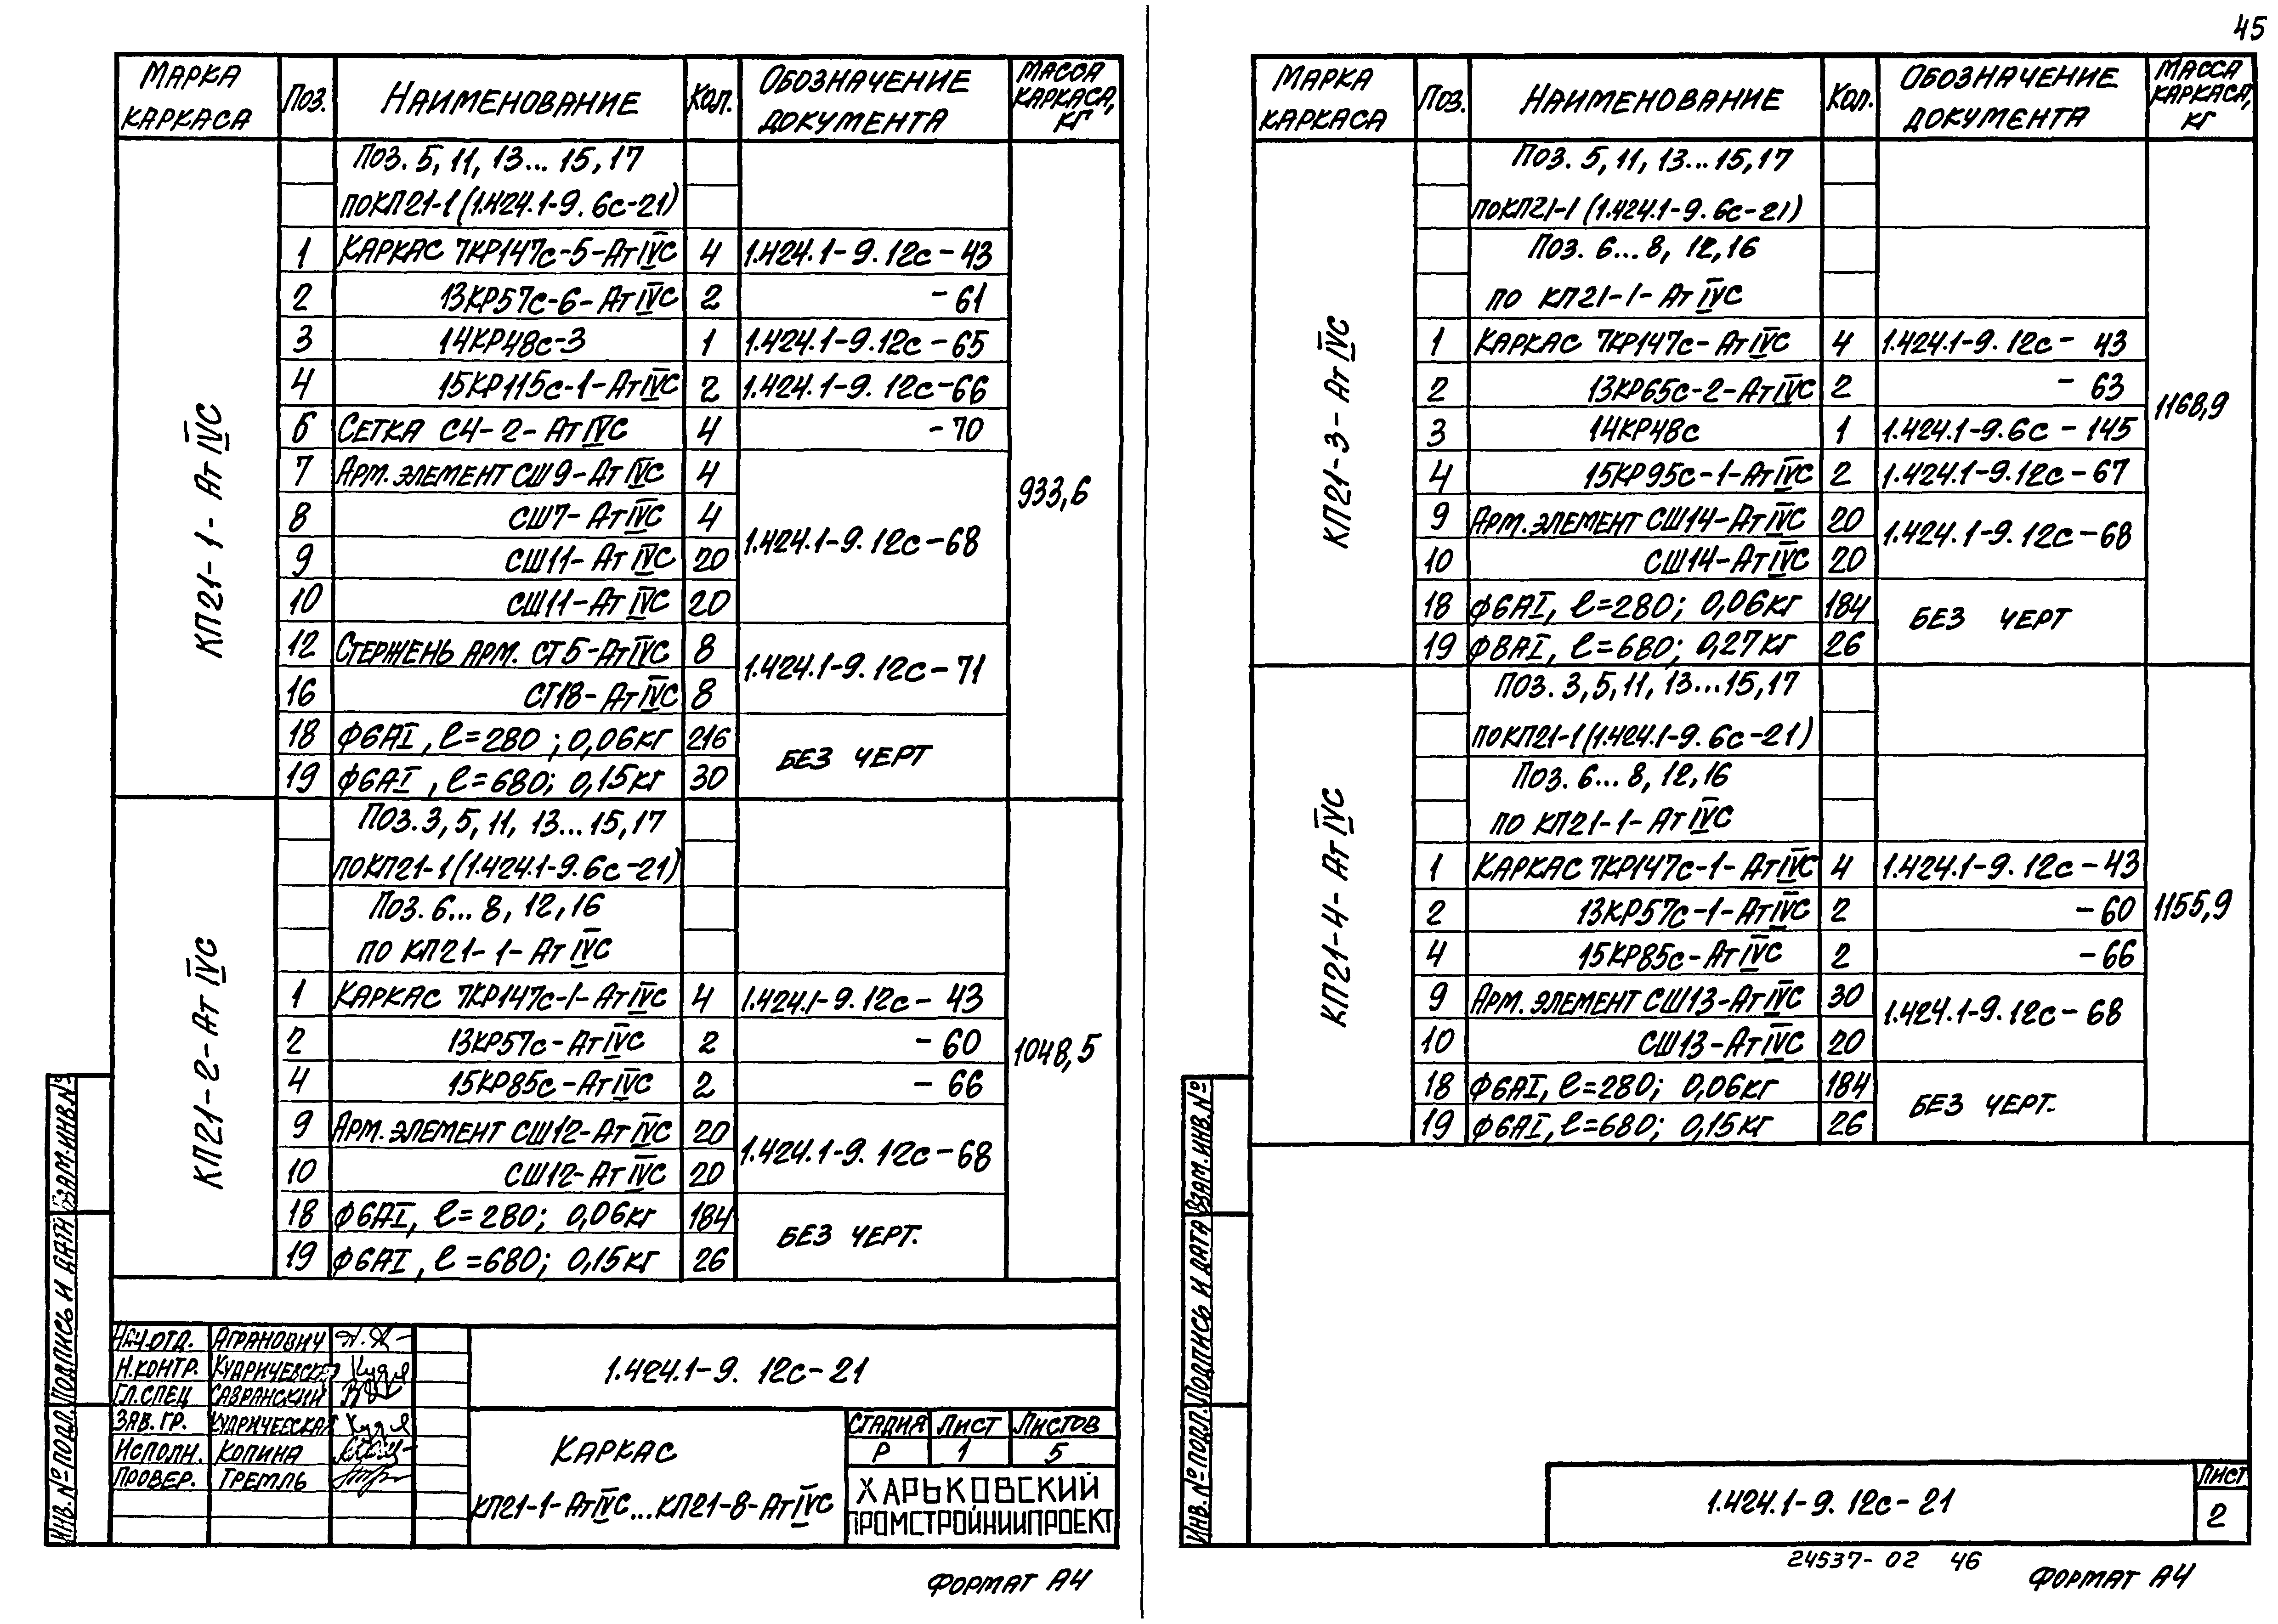 45
Марка каркаса | Поз. | Наименование | Кол. | Обозначение документа | Масса каркаса, кг
КП21-1-АтIVС
Поз. 5, 11, 13...15, 17
по КП21-1 (1.424.1-9.6с-21)
1 | Каркас 7КР147с-5-АтIVС | 4 | 1.424.1-9.12с-43
2 | 13КР57с-6-АтIVС | 2 | -61
3 | 14КР48с-3 | 1 | 1.424.1-9.12с-65
4 | 15КР115с-1-АтIVС | 2 | 1.424.1-9.12с-66
6 | Сетка С4-2-АтIVС | 4 | -70
7 | Арм. элемент СШ9-АтIVС | 4
8 | СШ7-АтIVС | 4 | 1.424.1-9.12с-68
9 | СШ11-АтIVС | 20
10 | СШ11-АтIVС | 20
12 | Стержень арм. СТ5-АтIVС | 8 | 1.424.1-9.12с-71
16 | СТ18-АтIVС | 8
18 | Ф6АI, ℓ=280; 0,06кг | 216 | без черт
19 | Ф6АI, ℓ=680; 0,15кг | 30
933,6
КП21-2-АтIVС
Поз. 3, 5, 11, 13...15, 17
по КП21-1 (1.424.1-9.6с-21)
Поз. 6...8, 12, 16
по КП21-1-АтIVС
1 | Каркас 7КР147с-1-АтIVС | 4 | 1.424.1-9.12с-43
2 | 13КР57с-АтIVС | 2 | -60
4 | 15КР85с-АтIVС | 2 | -66
9 | Арм. элемент СШ12-АтIVС | 20 | 1.424.1-9.12с-68
10 | СШ12-АтIVС | 20
18 | Ф6АI, ℓ=280; 0,06кг | 184 | без черт.
19 | Ф6АI, ℓ=680; 0,15кг | 26
1048,5
Взам. инв. №
Подпись и дата
Инв. № подл.
Нач. отд. | Агранович
Н. контр. | Кудричевская
Гл. спец | Савранский
Зав. гр. | Кудричевская
Исполн. | Копина
Провер. | Тремль
1.424.1-9. 12с-21
Каркас
КП21-1-АтIVС...КП21-8-АтIVС
Стадия | Лист | Листов
Р | 1 | 5
Харьковский
Промстройниипроект
Формат А4
Марка каркаса | Поз. | Наименование | Кол. | Обозначение документа | Масса каркаса, кг
КП21-3-АтIVС
Поз. 5, 11, 13...15, 17
по КП21-1 (1.424.1-9.6с-21)
Поз. 6...8, 12, 16
по КП21-1-АтIVС
1 | Каркас 7КР147с-АтIVС | 4 | 1.424.1-9.12с-43
2 | 13КР65с-2-АтIVС | 2 | -63
3 | 14КР48с | 1 | 1.424.1-9.6с-145
4 | 15КР95с-1-АтIVС | 2 | 1.424.1-9.12с-67
9 | Арм. элемент СШ14-АтIVС | 20 | 1.424.1-9.12с-68
10 | СШ14-АтIVС | 20
18 | Ф6АI, ℓ=280; 0,06кг | 184 | без черт
19 | Ф8АI, ℓ=680; 0,27кг | 26
1168,9
КП21-4-АтIVС
Поз. 3, 5, 11, 13...15, 17
по КП21-1 (1.424.1-9.6с-21)
Поз. 6...8, 12, 16
по КП21-1-АтIVС
1 | Каркас 7КР147с-1-АтIVС | 4 | 1.424.1-9.12с-43
2 | 13КР57с-1-АтIVС | 2 | -60
4 | 15КР85с-АтIVС | 2 | -66
9 | Арм. элемент СШ13-АтIVС | 30 | 1.424.1-9.12с-68
10 | СШ13-АтIVС | 20
18 | Ф6АI, ℓ=280; 0,06кг | 184 | без черт.
19 | Ф6АI, ℓ=680; 0,15кг | 26
1155,9
Взам. инв. №
Подпись и дата
Инв. № подл.
1.424.1-9. 12с-21
Лист
2
24537-02 46
Формат А4